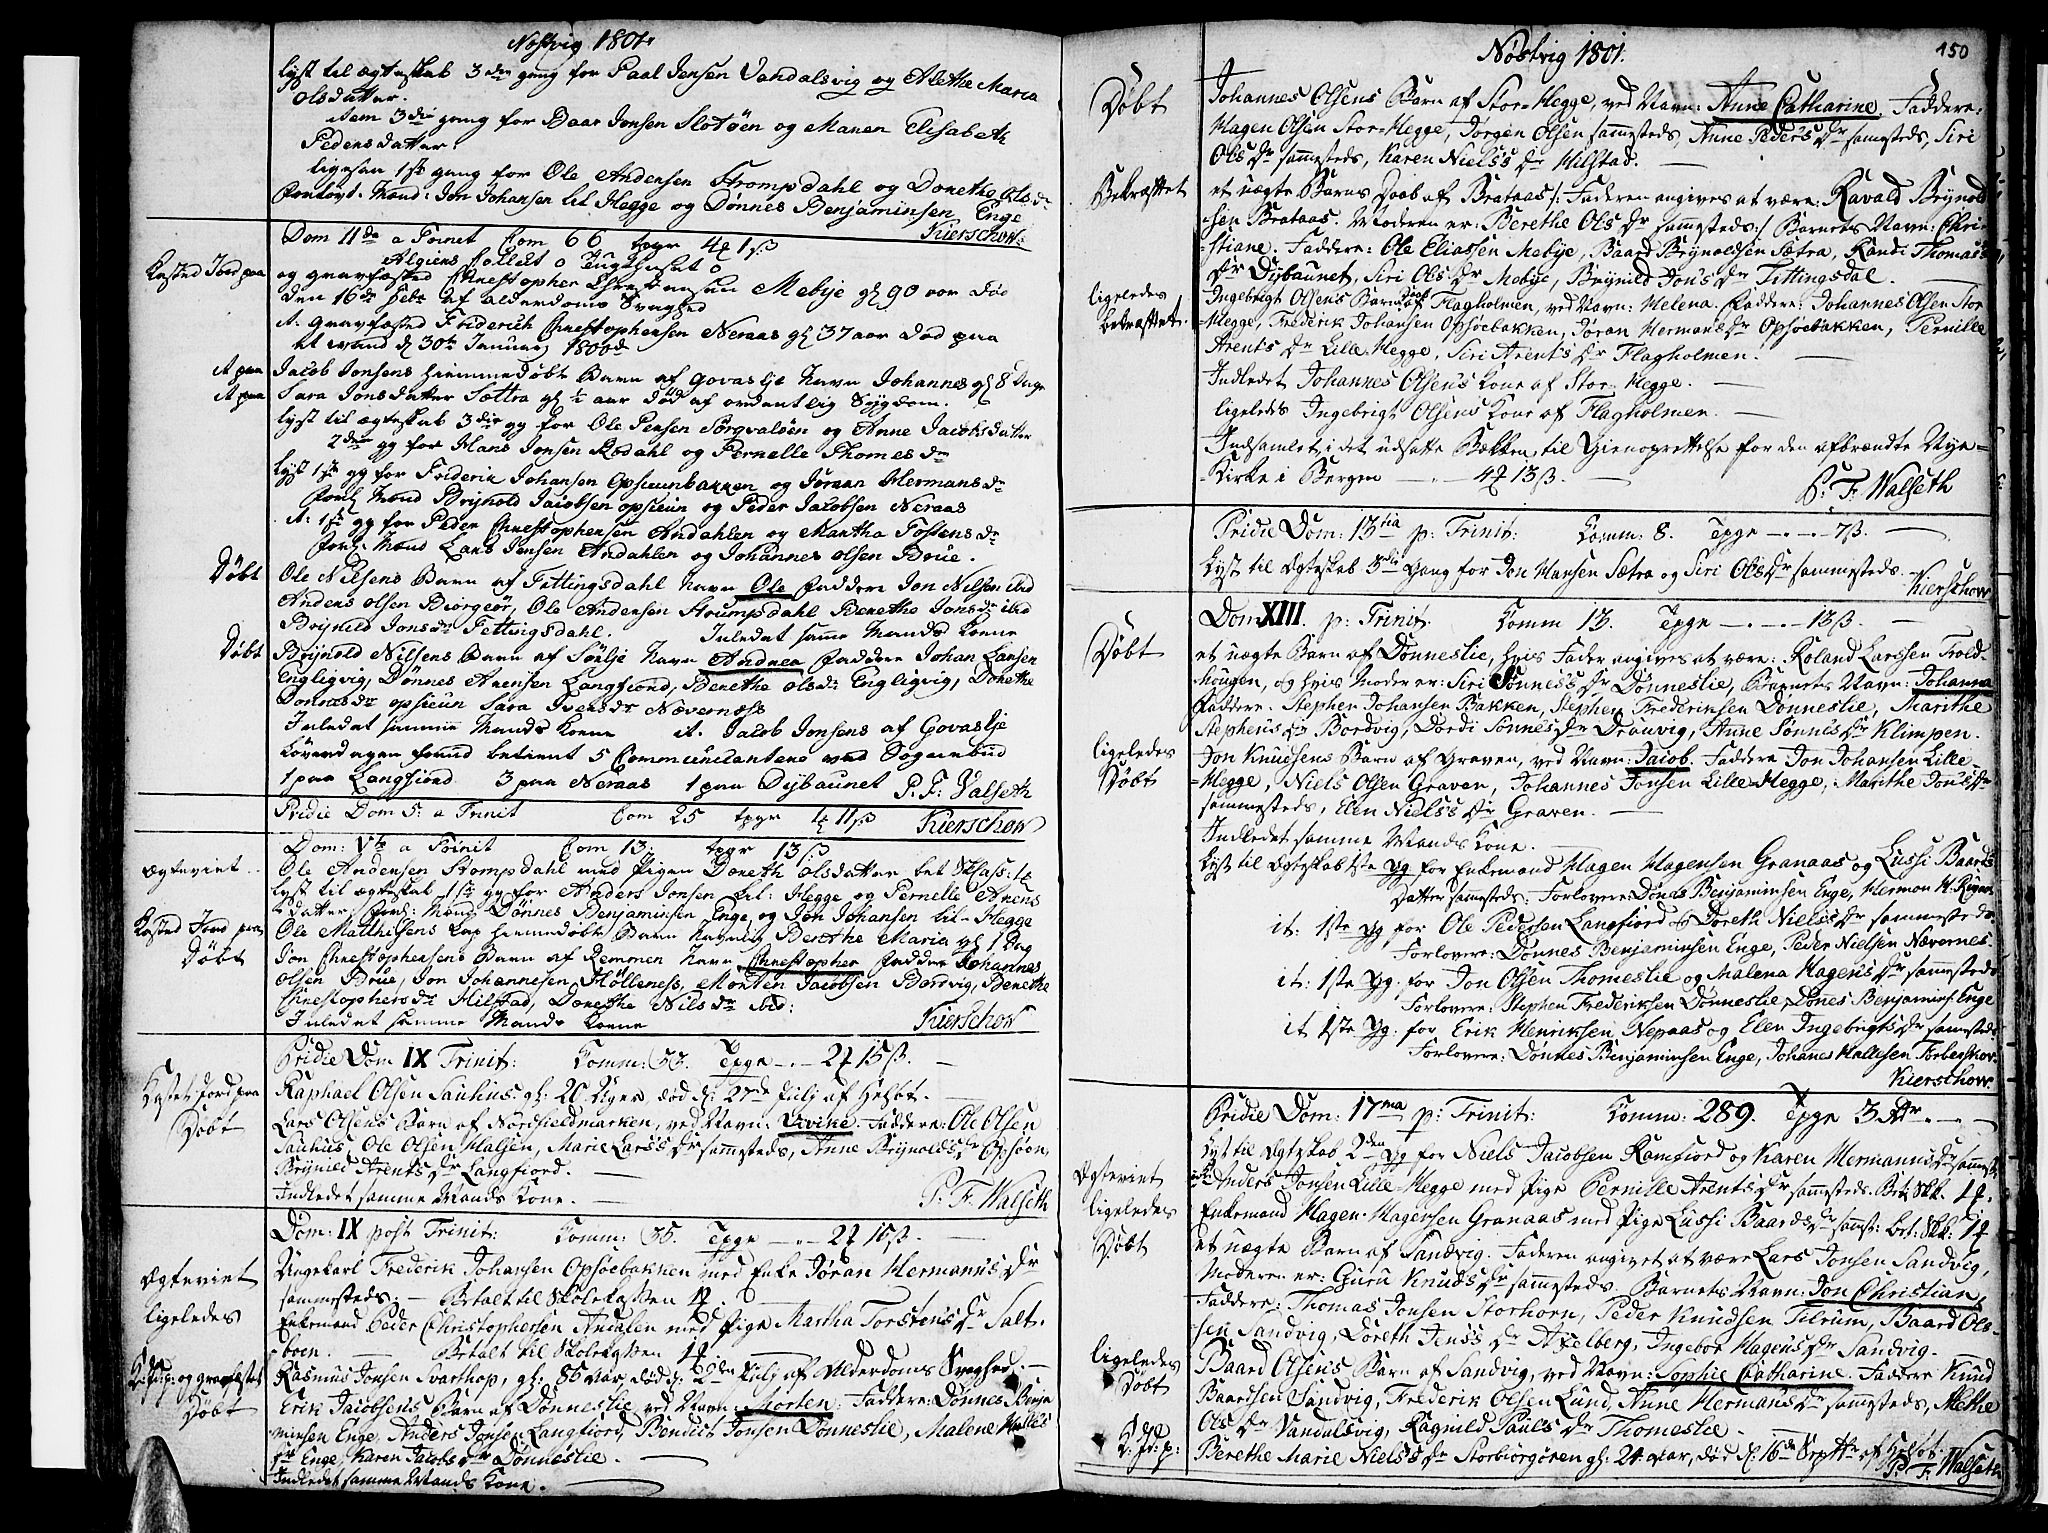 Nøstvig 1801.
lyst til ægteskab 3die gang for Paal Jensen Vandalsvig og Alethe Maria
olsdatter.
item 3die gang for Baar Jonsen Slotøen og Maren Elisabeth
Pedersdatter.
ligesaa 1ste gang for Ole Andersen Strompdahl og Dorethe Olsdr
Forlovs Mænd: Jon Johansen lil Hegge og Dønnes Benjaminsen Enge
Kierschow.
Dom 11da a Trinit Com 66 tpgr 4 1ß
Kasted Jord paa
og gravfæsted Christopher Christensen Mebÿe gl 90 aar død
den 16de Febr af alderdoms Svaghed
it. gravfæsted Friderich Christophersen Neraas gl 37 aar død paa
30te Januarj 1800
it paa Jacob Jonsens hiemmedøbt Barn af Govaslje navn Johannes gl 8 Dage
it paa Sara Jonsdatter Sættra gl ½ aar død af ordentlig Sygdom.
lyst til ægteskab 3die gg for Ole Persen Torgvaløen og Anne Jacobsdatter
2den gg for Hans Jonsen Rødahl og Pernelle Thomesdr
lyst 1ste gg for Friderich Johansen Opsieunbakken og Joraan Hermansdr
Forl: Mænd Brÿnold Jacobsen opsieun og Peder Jacobsen Neraas
it: 1ste gg for Peder Christophersen Andahlen og Martha Tostensdr
Forl: Mænd Lars Jensen Andahlen og Johannes olsen Brue.
Døbt Ole Nilsens Barn af Fittingsdahl navn Ole faddere Jon Nilsen ibid
Anders olsen Biørgeør, Ole Andersen Strumpdahl Berethe Jonsdr ibid
Brÿnild Jonsdr Fettingsdahl. Inledet samme Mands Kone
Døbt Brÿnold Nilsens Barn af Sørlje navn Andrea faddere Johan Larsen
Engligvig, Dønnes Arensen Langfiord, Berethe olsdr Engligvig, Dorethe
opsieun Sara Iversdr Nævernæss
Inledet samme Mands Kone it. Jacob Jonsens af Govaslje
betient 5 Communicantere ved Sognebud
1 paa Langfiord 3 paa Neraas 1 paa Dÿbaunet P. F. Valseth
Pridie Dom 5: a Trinit Com 25 tpgr 4 11ß Kierschow
Dom: Vta a Trinit Com 13: tpgr 13ß
ægteviet Ole Andersen Stompdahl med Pigen Doreth olsdatter
lyst til ægteskab 1ste gg for Anders Jonsen lil: Hegge og Pernelle Arens
datter, Forl: Mænd Dønnes Benjaminsen Enge, og Jon Johansen lil-Hegge
Kasted Jord paa Ole Matthisens Lap hiemmedøbt Barn navnlig Berethe Maria gl 1 Dag
Døbt Jon Christophersens Barn af Remmen navn Christopher faddere Johannes
olsen Brue, Jon Johannesen Hølleness, Morten Jacobsen Bordvig, Berethe
Christophersdr Hilstad, Dorethe Nilsdr ibid:
Inledet samme Mands Kone Kierschow
Pridie Dom IX Trinit: Komm: 33. Tpge 2 15ß.
Kastet Jord paa Raphael Olsen Sauhus: gl: 20 Uger, død d: 27de Julj af Helsot.
Døbt Lars Olsens Barn af Nordfieldmarken, ved Navn: Vivike. Faddere: Ole Olsen
Sauhus, Ole Olsen Halsen, Marie Lars's Dr sammesteds, Anne Brÿnolds's Dr Opsøen,
Brÿnild Arent's Dr Langfiord.
Indledet samme Mands Kone. P. F. Walseth
Dom: IX post Trinit: Komm: 35. Tpge 2 15ß.
Ægteviet Ungekarl Frederik Johansen Opsøebakken med Enke Jøran Herman's Dr
sammesteds. Betalt til Skolekassen
ligeledes Enkemand Peder Christophersen Andalen med Pige Martha Torsten's Dr Salt-
boen. Betalt til Skolekassen
Rasmus Jonsen Svarthop, gl: 86 Aar, død d: 2den Julj af Alderdoms Svaghed.
Døbt Erik Jacobsens Barn af Dønneslie, ved Navn: Morten. Faddere: Dønnes Benja-
minsen Enge, Anders Jonsen Langfiord, Bendict Jonsen Dønneslie, Malene
Dr Enge, Karen Jacobs Dr Dønneslie.
Indledet samme Mands Kone.
Nöstvig 1801. 150
Døbt Johannes Olsens Barn af Stor-Hegge, ved Navn: Anne Catharine. Faddere:
Hagen Olsen Stor-Hegge, Jørgen Olsen sammesteds, Anne Peders's Dr sammesteds, Siri
Ols Dr sammesteds, Karen Niels's Dr Hilstad.
Bekræftet et uægte Barns Daab af Brataas /: Faderen angives at være: Ravald Brÿnold-
sen Brataas. Moderen er: Berethe Ols Dr sammesteds :/ Barnets Navn: Chri-
stiane. Faddere: Ole Eliassen Mebÿe, Baard Brÿnoldsen Sætra, Randi Thomas's
Dr Dÿbaunet, Siri Ols Dr Mebÿe, Brÿnild Jon's Dr Fittingsdal.
ligeledes bekræftet Ingebrigt Olsens Barns Daab af Flagholmen, ved Navn: Helena. Faddere: Johannes Olsen Stor-
Hegge, Frederik Johansen Opsøebakken, Jøran Hermans Dr Opsøebakken, Pernille
Arent's Dr Lille-Hegge, Siri Arent's Dr Flagholmen.
Indledet Johannes Olsen's Kone af Stor-Hegge.
ligeledes Ingebrigt Olsens Kone af Flagholmen.
Indsamlet i det udsatte Bækken til Gienoprettelse for den afbrændte Nye-
Kirke i Bergen 4 13ß.
P: F. Walseth
Pridie Dom: 13tia p: Trinit: Komm: 8. Tpge 7ß.
Lyst til Ægteskab 3die Gang for Jon Hansen Sætra og Siri Ols Dr sammesteds. Kierschow
Dom XIII. p: Trinit. Komm 13. Tpge 13ß.
Døbt et uægte Barn af Dønneslie, hvis Fader angives at være: Roland Larssen Trold-
hougen, og hvis Moder er: Siri Sønnes's Dr Dønneslie, Barnets Navn: Johanna
Faddere: Stephen Johansen Bakken, Stephen Frederiksen Dønneslie, Marithe
Stephens Dr Bordvig, Dordi Sønnes's Dr Drauvig, Anne Sønnes Dr Klimpen.
ligeledes Døbt Jon Knudsens Barn af Graven, ved Navn: Jacob. Faddere Jon Johansen Lille-
Hegge, Niels Olsen Graven, Johannes Jonsen Lille-Hegge, Marithe Jon's Dr
sammesteds, Elen Niels's Dr Graven.
Indledet samme Mands Kone.
Lyst til Ægteskab 1ste gg for Enkemand Hagen Hagensen Granaas og Lussi Baards
Datter sammesteds: Forlovere: Dønes Benjaminsen Enge, Herman H:
it: 1ste gg for Ole Pedersen Langfiord og Doreth Niels's Dr sammesteds
Forlovere: Dønnes Benjaminsen Enge, Peder Nielsen Nævernes.
it: 1ste gg: for Jon Olsen Thomeslie og Malena Hagens Dr sammesteds
Forlovere: Stephen Frederiksen Dønneslie, Dønes Benjamins: Enge
it 1ste gg: for Erik Henriksen Nepaas og Elen Ingebrigts Dr sammesteds
Forlovere: Dønnes Benjaminsen Enge, Johanes Hallesen
Kierschow.
Pridie Dom: 17ma p: Trinit: Komm: 289. Tpge 3
Lyst til Ægteskab 2den gg for Niels Jacobsen Ramfiord og Karen Hermanns Dr sammest:
Ægteviet Anders Jonsen Lille-Hegge med Pige Pernille Arents Dr sammesteds. Bet: Skk.
ligeledes Enkemand Hagen Hagensen Granaas med Pige Lussi Baards Dr samst: bet: Skk:
Døbt et uægte Barn af Sandvig. Faderen angivet at være Lars Jonsen Sandvig,
Moderen er: Guru Knuds Dr sammesteds. Barnets Navn: Jon Christian,
Faddere: Thomas Jonsen Storhorn, Peder Knudsen Tilrum, Baard Ols-
sen Sandvig, Doreth Jens's Dr Axelberg, Ingebor Hagens Dr Sandvig.
ligeledes Døbt Baard Olsens Barn af Sandvig, ved Navn: Sophie Catharine. Faddere Knud
Baardsen Sandvig, Frederik Olsen Lund, Anne Herman's Dr sammesteds, Alethe
Ols Dr Vandalsvig, Ragnild Paul's Dr Thomeslie.
K: Jd: p: Berethe Marie Niels's Dr Storbiørgøren gl: 24 Aar, død d: 16de Septbr af Helsot.
P. F. Walseth